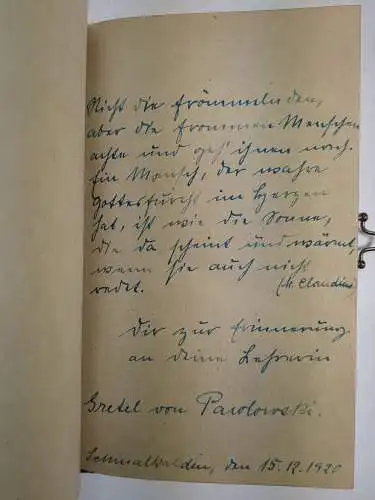 Nicht die frömmelnden,
aber die frommen Menschen
achte und geh' ihnen nach.
Ein Mensch, der wahre
Gottesfurcht im Herzen
hat, ist wie die Sonne,
die da scheint und wärmt,
wenn sie auch nicht
redet. (M. Claudius)
Dir zur Erinnerung
an deine Lehrerin
Gretel von Pawlowski.
den 15.12.1920